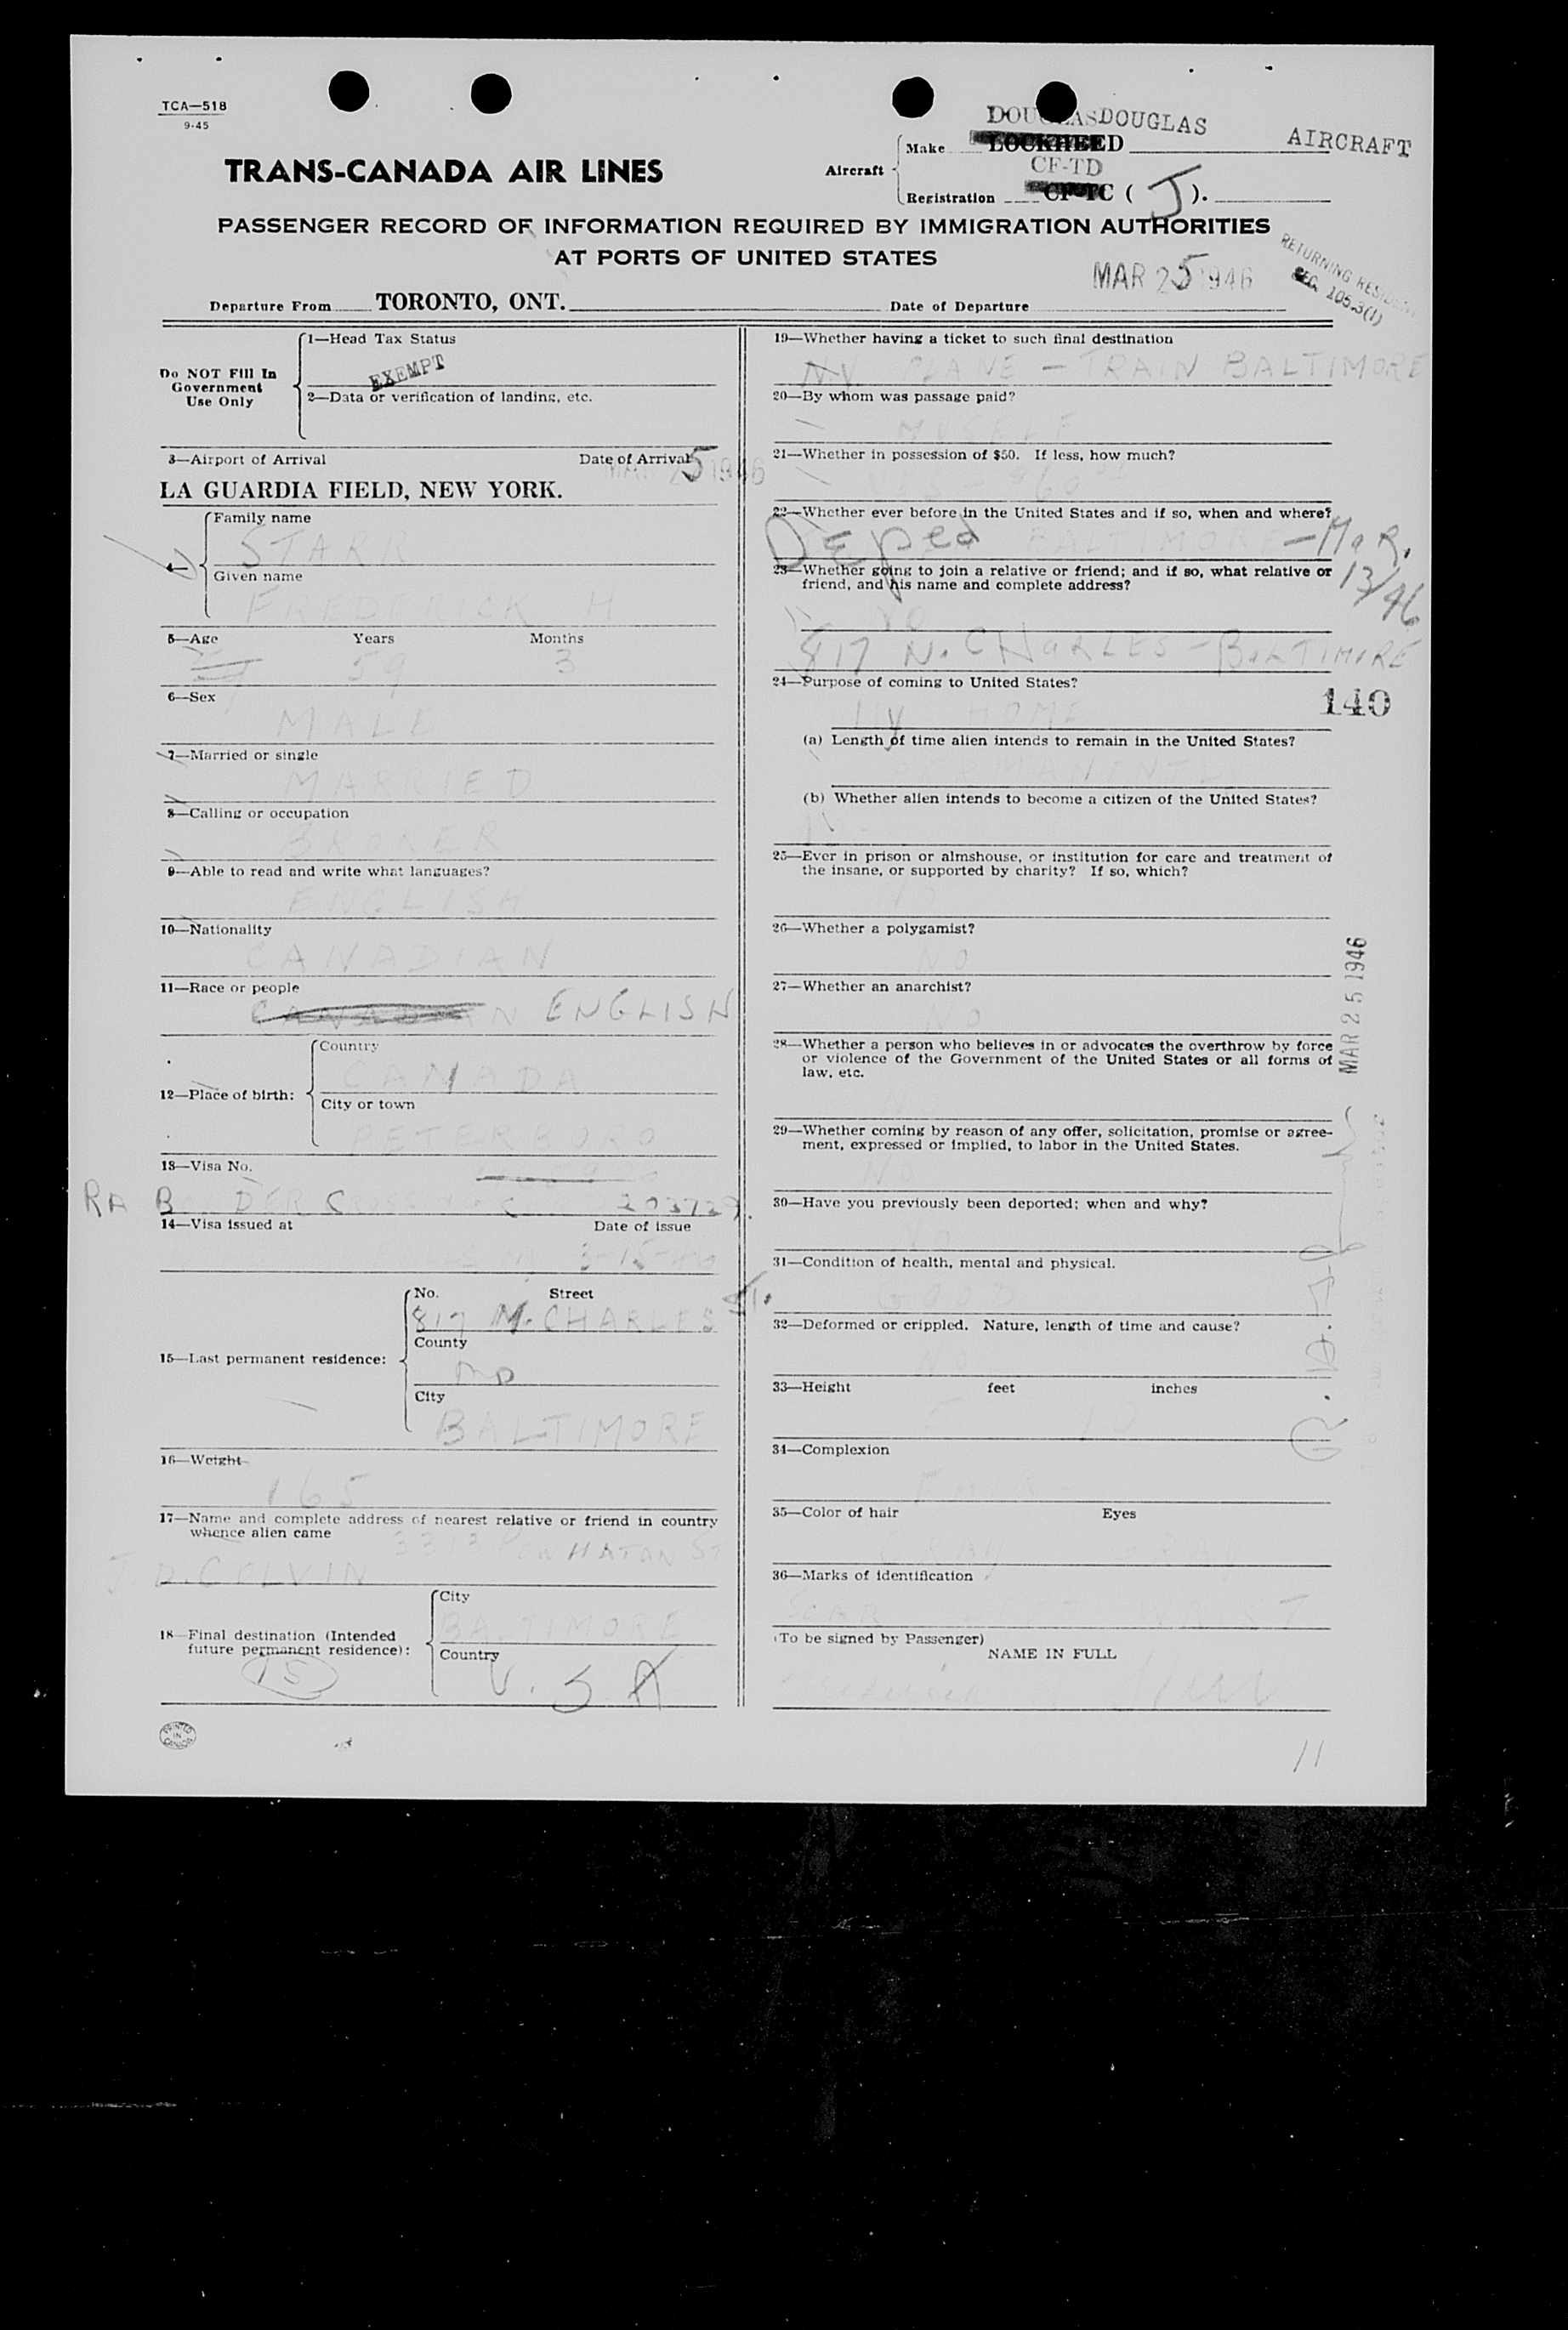 TCA—518
9-45
DOUGLAS DOUGLAS AIRCRAFT
Make LOCKHEED
TRANS-CANADA AIR LINES
Aircraft
CF-TD
Registration CF-TC ( J ).
PASSENGER RECORD OF INFORMATION REQUIRED BY IMMIGRATION AUTHORITIES
AT PORTS OF UNITED STATES
RETURNING RESIDENT
SEC. 105.3(1)
MAR 25 1946
Departure From TORONTO, ONT. Date of Departure
Do NOT Fill In
Government
Use Only
1—Head Tax Status
EXEMPT
2—Data or verification of landing, etc.
3—Airport of Arrival Date of Arrival
MAR 25 1946
LA GUARDIA FIELD, NEW YORK.
4—
Family name
STARR
Given name
FREDERICK H
5—Age Years Months
59 3
6—Sex
MALE
7—Married or single
MARRIED
8—Calling or occupation
9—Able to read and write what languages?
ENGLISH
10—Nationality
CANADIAN
11—Race or people
CANADIAN ENGLISH
12—Place of birth:
Country
CANADA
City or town
PETERBORO
13—Visa No.
RA B DER C 203729.
14—Visa issued at Date of issue
3-15-
15—Last permanent residence:
No. Street
817 N. CHARLES St.
County
MD
City
BALTIMORE
16—Weight
165
17—Name and complete address of nearest relative or friend in country
whence alien came
HATAN ST
J D. COLVIN
18—Final destination (Intended
future permanent residence):
City
BALTIMORE
Country
U. S. A
15
PRINTED
IN
CANADA
19—Whether having a ticket to such final destination
N.Y. PLANE — TRAIN BALTIMORE
20—By whom was passage paid?
MYSELF
21—Whether in possession of $50. If less, how much?
YES $60
22—Whether ever before in the United States and if so, when and where?
Deped BALTIMORE — MaR. 13/46
23—Whether going to join a relative or friend; and if so, what relative or
friend, and his name and complete address?
NO
817 N. CHARLES — BALTIMORE
24—Purpose of coming to United States?
140
MY HOME
(a) Length of time alien intends to remain in the United States?
PERMANENTLY
(b) Whether alien intends to become a citizen of the United States?
25—Ever in prison or almshouse, or institution for care and treatment of
the insane, or supported by charity? If so, which?
NO
26—Whether a polygamist?
NO
27—Whether an anarchist?
NO
MAR 25 1946
28—Whether a person who believes in or advocates the overthrow by force
or violence of the Government of the United States or all forms of
law, etc.
29—Whether coming by reason of any offer, solicitation, promise or agree-
ment, expressed or implied, to labor in the United States.
NO
30—Have you previously been deported; when and why?
31—Condition of health, mental and physical.
GOOD
32—Deformed or crippled. Nature, length of time and cause?
NO
33—Height feet inches
5 10
34—Complexion
35—Color of hair Eyes
GRAY
36—Marks of identification
SCAR
(To be signed by Passenger)
NAME IN FULL
11